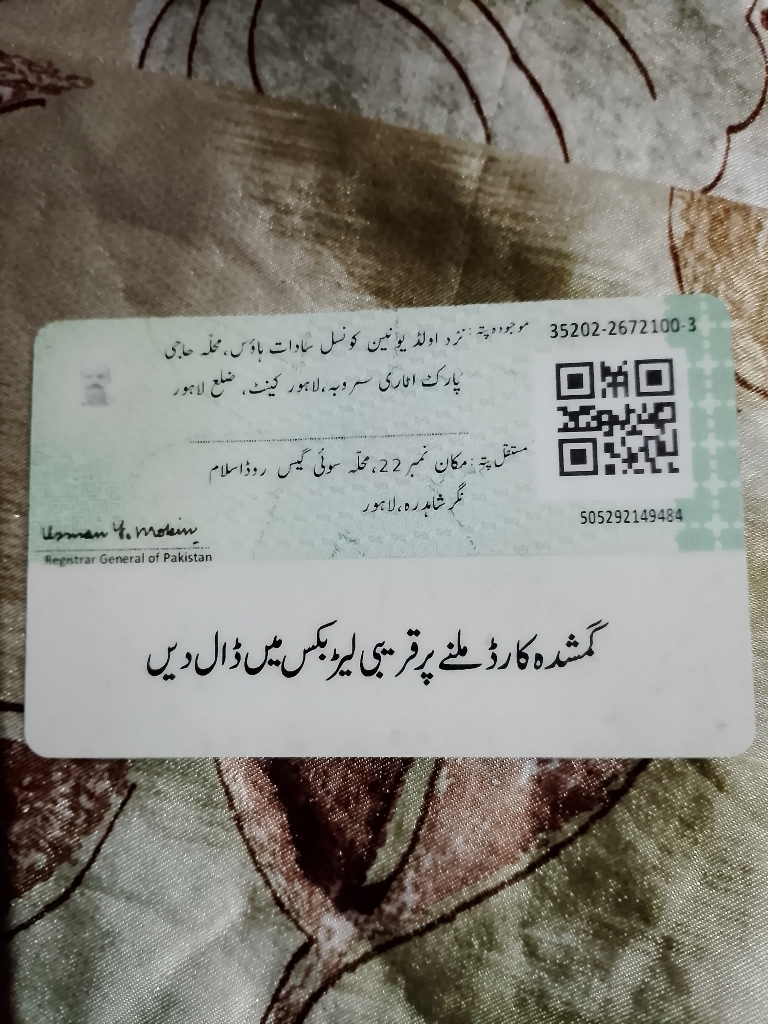 35202-2672100-3
موجودہ پتہ: نزد اولڈ یونین کونسل سادات ہاؤس، محلہ حاجی
پارک اٹاری سروبہ، لاہور کینٹ، ضلع لاہور
مستقل پتہ: مکان نمبر 22، محلہ سوئی گیس روڈ اسلام
نگر شاہدرہ، لاہور
505292149484
Usman Y. Mobin
Registrar General of Pakistan
گمشدہ کارڈ ملنے پر قریبی لیٹر بکس میں ڈال دیں